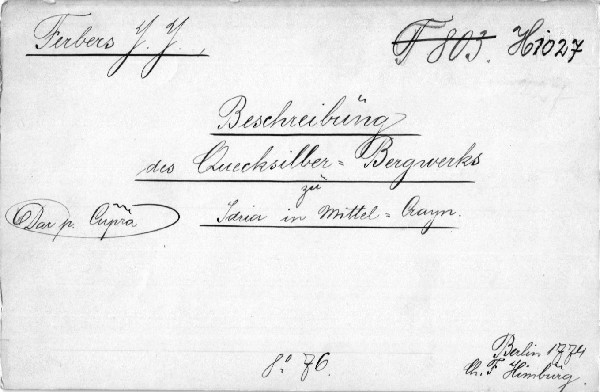 Ferbers J. J.,
T 803. H1027
Beschreibung
des Quecksilber=Bergwerks
zu
Idria in Mittel=Crayn.
Dar p. Cupra
8° 76.
Berlin 1774
Ch. F. Himburg.